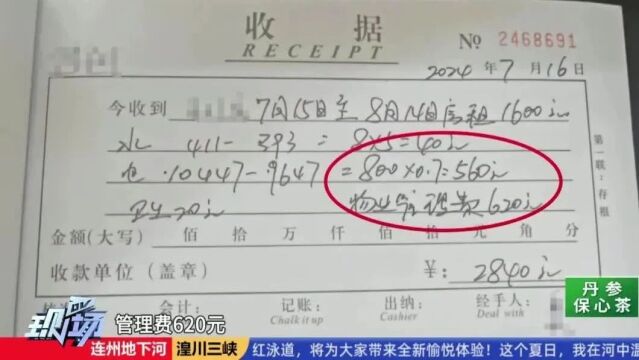 收据
RECEIPT
№ 2468691
2024 年 7 月 16 日
今收到 7月15日至8月14日房租1600元
水 411-393=8×5=40元
电 10447-9647=800×0.7=560元
卫生20元 物业管理费620元
金额(大写) 佰 拾 万 仟 佰 拾 元 角 分
收款单位(盖章) ¥: 2840元
会计: 记账: 出纳: 经手人:
Chalk it up Cashier: Deal with:
第一联:存根
丹参
保心茶
现场
管理费620元
连州地下河 湟川三峡 红泳道,将为大家带来全新愉悦体验!这个夏日,我在河中漂